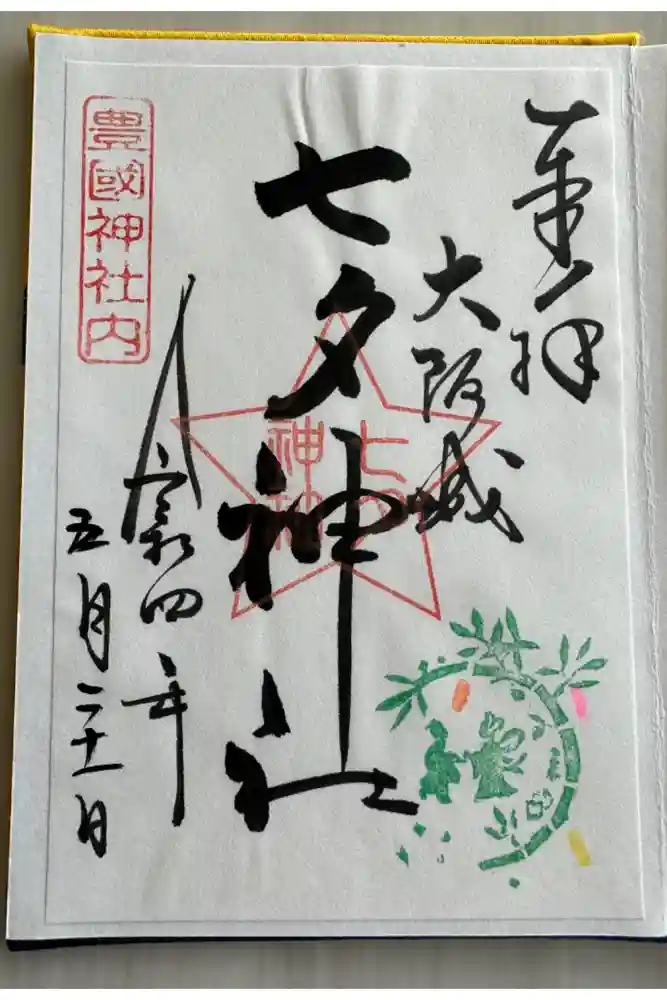 奉拝
大阪城
七夕神社
七夕
神社
令和四年
五月二十一日
豊國神社内